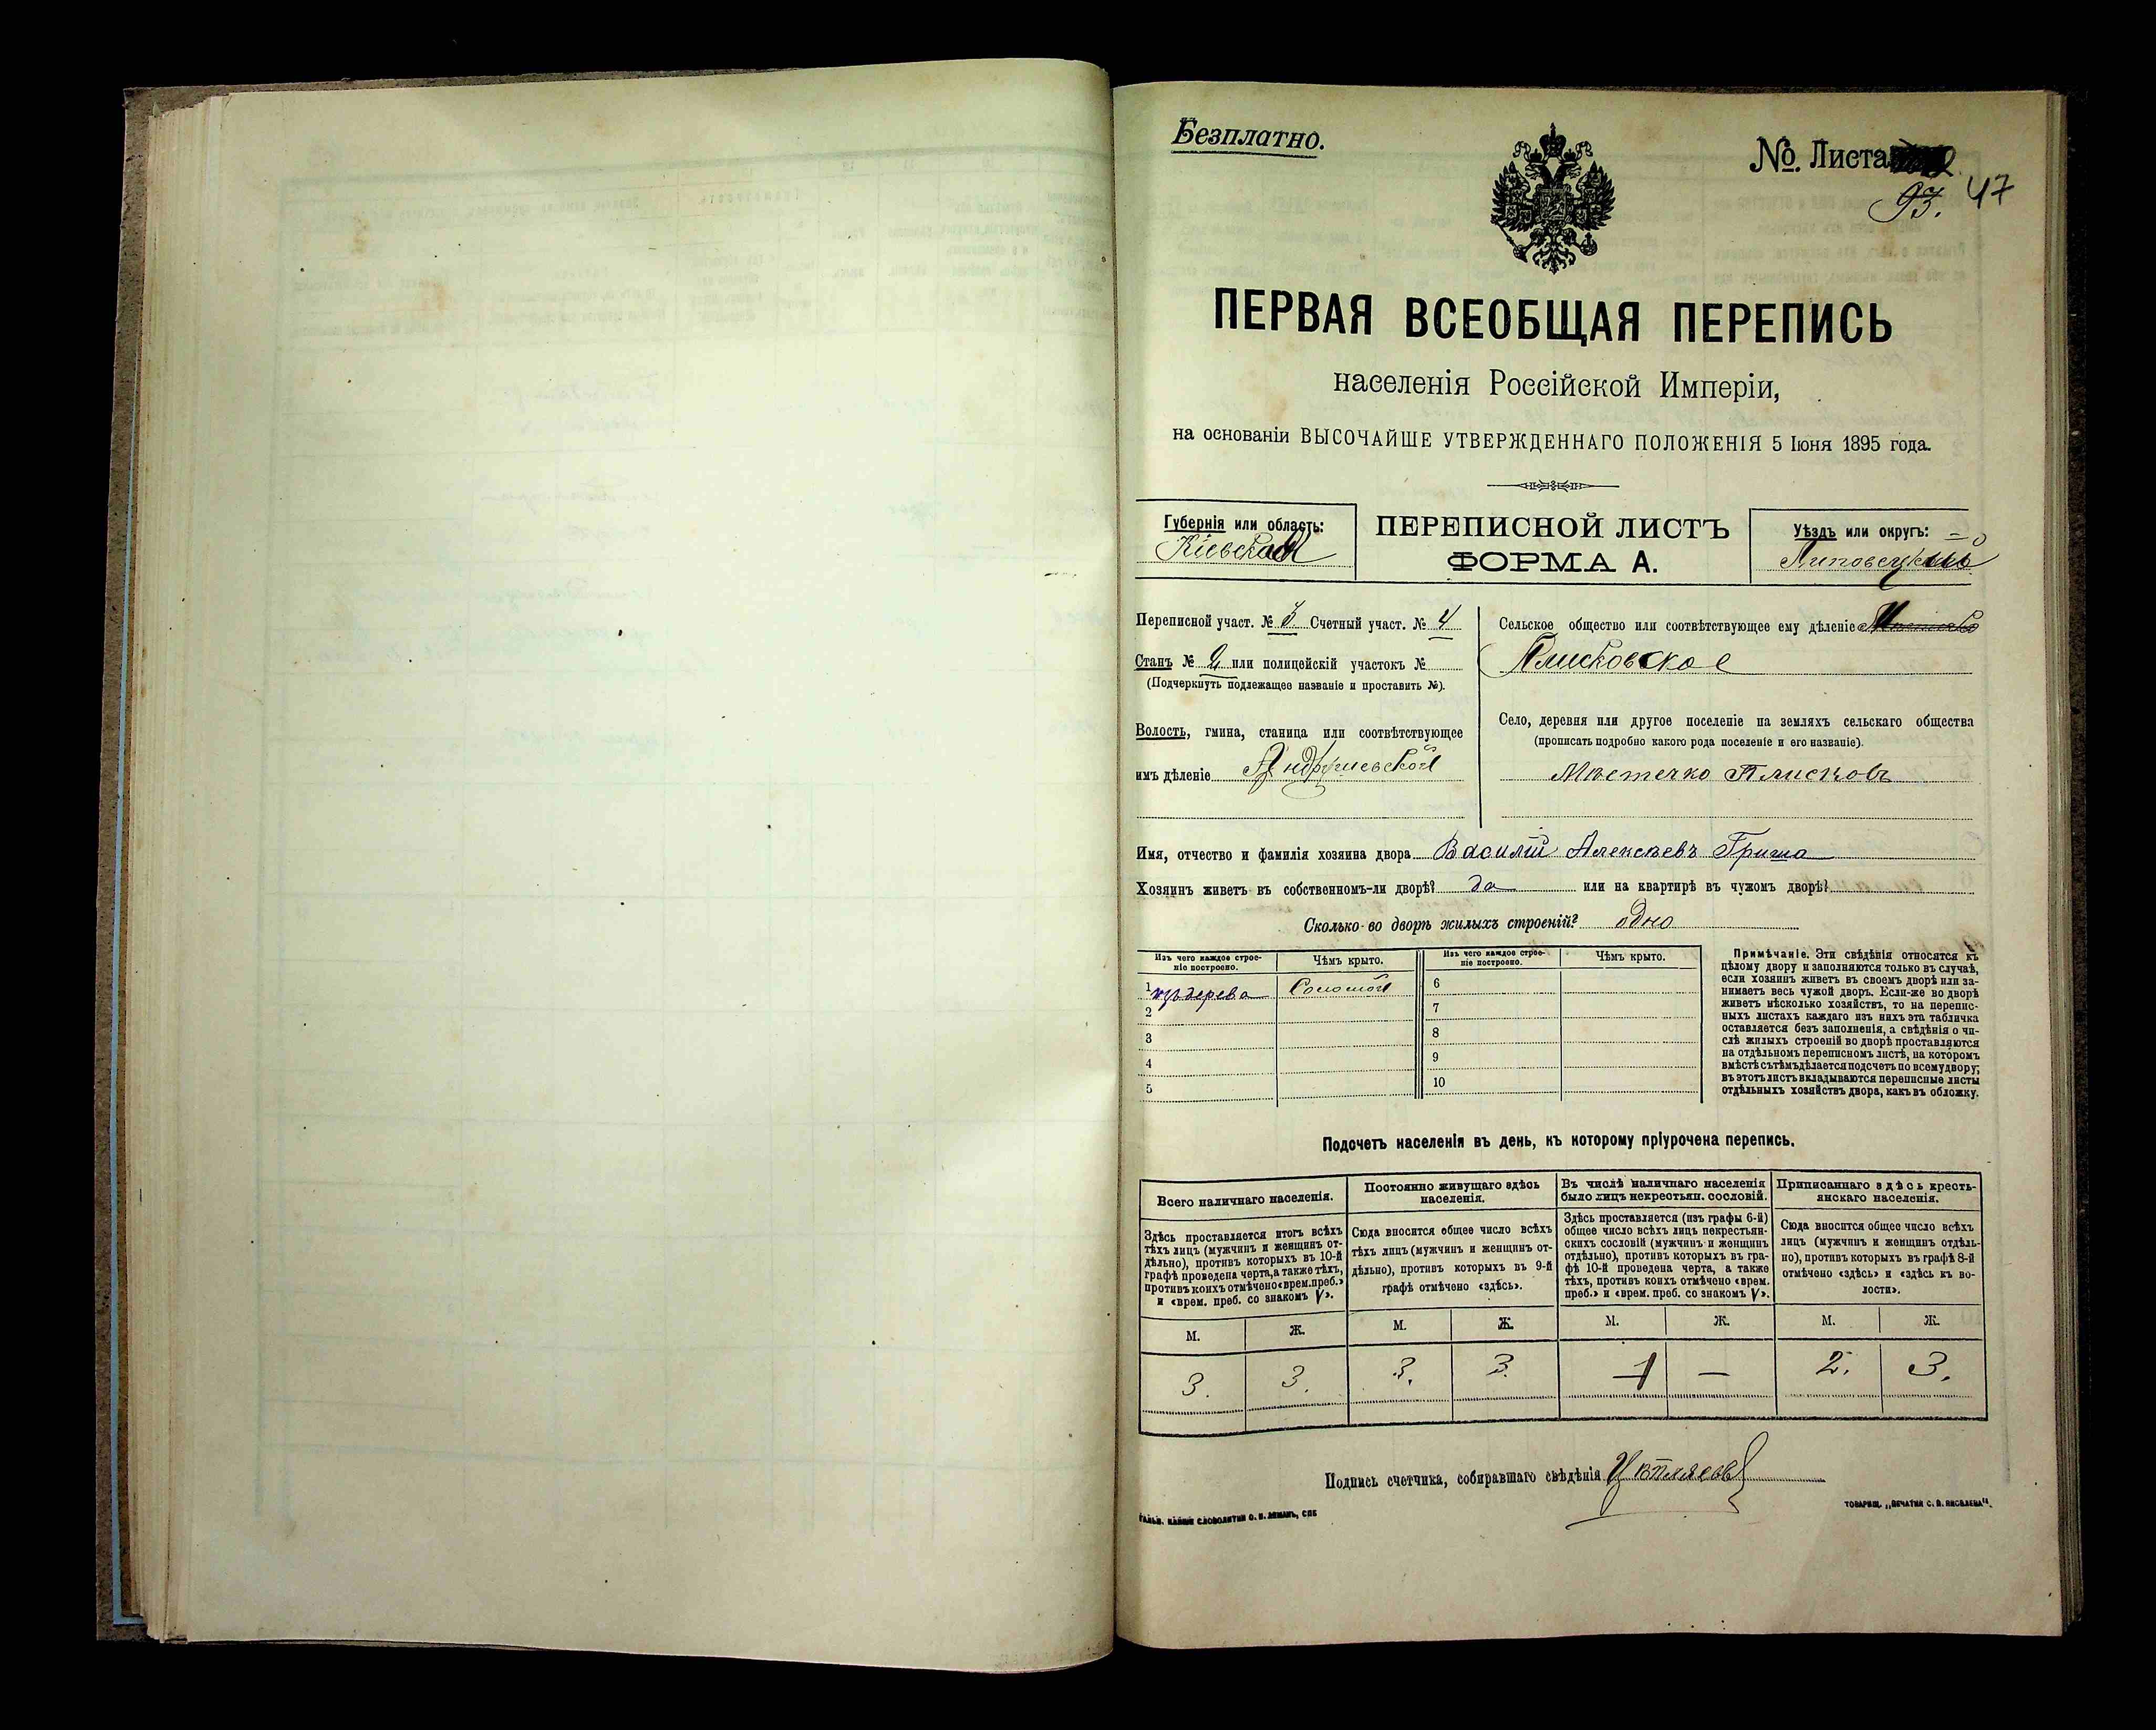 Безплатно.
№ Листа
93. 47
ПЕРВАЯ ВСЕОБЩАЯ ПЕРЕПИСЬ
населенія Россійской Имперіи,
на основаніи ВЫСОЧАЙШЕ УТВЕРЖДЕННАГО ПОЛОЖЕНІЯ 5 Іюня 1895 года.
Губернія или область:
Кіевская
ПЕРЕПИСНОЙ ЛИСТЪ
ФОРМА А.
Уѣздъ или округъ:
Липовецкій
Переписной участ. № 3 Счетный участ. № 4
Станъ № 2 или полицейскій участокъ №
(Подчеркнуть подлежащее названіе и проставить №).
Волость, гмина, станица или соотвѣтствующее
имъ дѣленіе Андрушевской
Сельское общество или соотвѣтствующее ему дѣленіе
Плисковское
Село, деревня или другое поселеніе на земляхъ сельскаго общества
(прописать подробно какого рода поселеніе и его названіе).
Мѣстечко Плисковъ
Имя, отчество и фамилія хозяина двора Василій Алексѣевъ Гриша
Хозяинъ живетъ въ собственномъ-ли дворѣ? да или на квартирѣ въ чужомъ дворѣ?
Сколько во дворѣ жилыхъ строеній? одно
Изъ чего каждое строе-
ніе построено.
Чѣмъ крыто.
Изъ чего каждое строе-
ніе построено.
Чѣмъ крыто.
1 изъ дерева Соломой 6
2 7
3 8
4 9
5 10
Примѣчаніе. Эти свѣдѣнія относятся къ
цѣлому двору и заполняются только въ случаѣ,
если хозяинъ живетъ въ своемъ дворѣ или за-
нимаетъ весь чужой дворъ. Если-же во дворѣ
живетъ нѣсколько хозяйствъ, то на перепис-
ныхъ листахъ каждаго изъ нихъ эта табличка
оставляется безъ заполненія, а свѣдѣнія о чи-
слѣ жилыхъ строеній во дворѣ проставляются
на отдѣльномъ переписномъ листѣ, на которомъ
вмѣстѣ съ тѣмъ дѣлается подсчетъ по всему двору;
въ этотъ листъ вкладываются переписные листы
отдѣльныхъ хозяйствъ двора, какъ въ обложку.
Подсчетъ населенія въ день, къ которому пріурочена перепись.
Всего наличнаго населенія.
Здѣсь проставляется итогъ всѣхъ
тѣхъ лицъ (мужчинъ и женщинъ от-
дѣльно), противъ которыхъ въ 10-й
графѣ проведена черта, а также тѣхъ,
противъ коихъ отмѣчено «врем. преб.»
и «врем. преб. со знакомъ V».
Постоянно живущаго здѣсь
населенія.
Сюда вносится общее число всѣхъ
тѣхъ лицъ (мужчинъ и женщинъ от-
дѣльно), противъ которыхъ въ 9-й
графѣ отмѣчено «здѣсь».
Въ числѣ наличнаго населенія
было лицъ некрестьян. сословій.
Здѣсь проставляется (изъ графы 6-й)
общее число всѣхъ лицъ некрестьян-
скихъ сословій (мужчинъ и женщинъ
отдѣльно), противъ которыхъ въ гра-
фѣ 10-й проведена черта, а также
тѣхъ, противъ коихъ отмѣчено «врем.
преб.» и «врем. преб. со знакомъ V».
Приписаннаго здѣсь кресть-
янскаго населенія.
Сюда вносится общее число всѣхъ
лицъ (мужчинъ и женщинъ отдѣль-
но), противъ которыхъ въ графѣ 8-й
отмѣчено «здѣсь» и «здѣсь къ во-
лости».
М. Ж. М. Ж. М. Ж. М. Ж.
3. 3. 3. 3. 1 — 2. 3.
Подпись счетчика, собиравшаго свѣдѣнія
ТОВАРИЩ. „ПЕЧАТНЯ С. П. ЯКОВЛЕВА“.